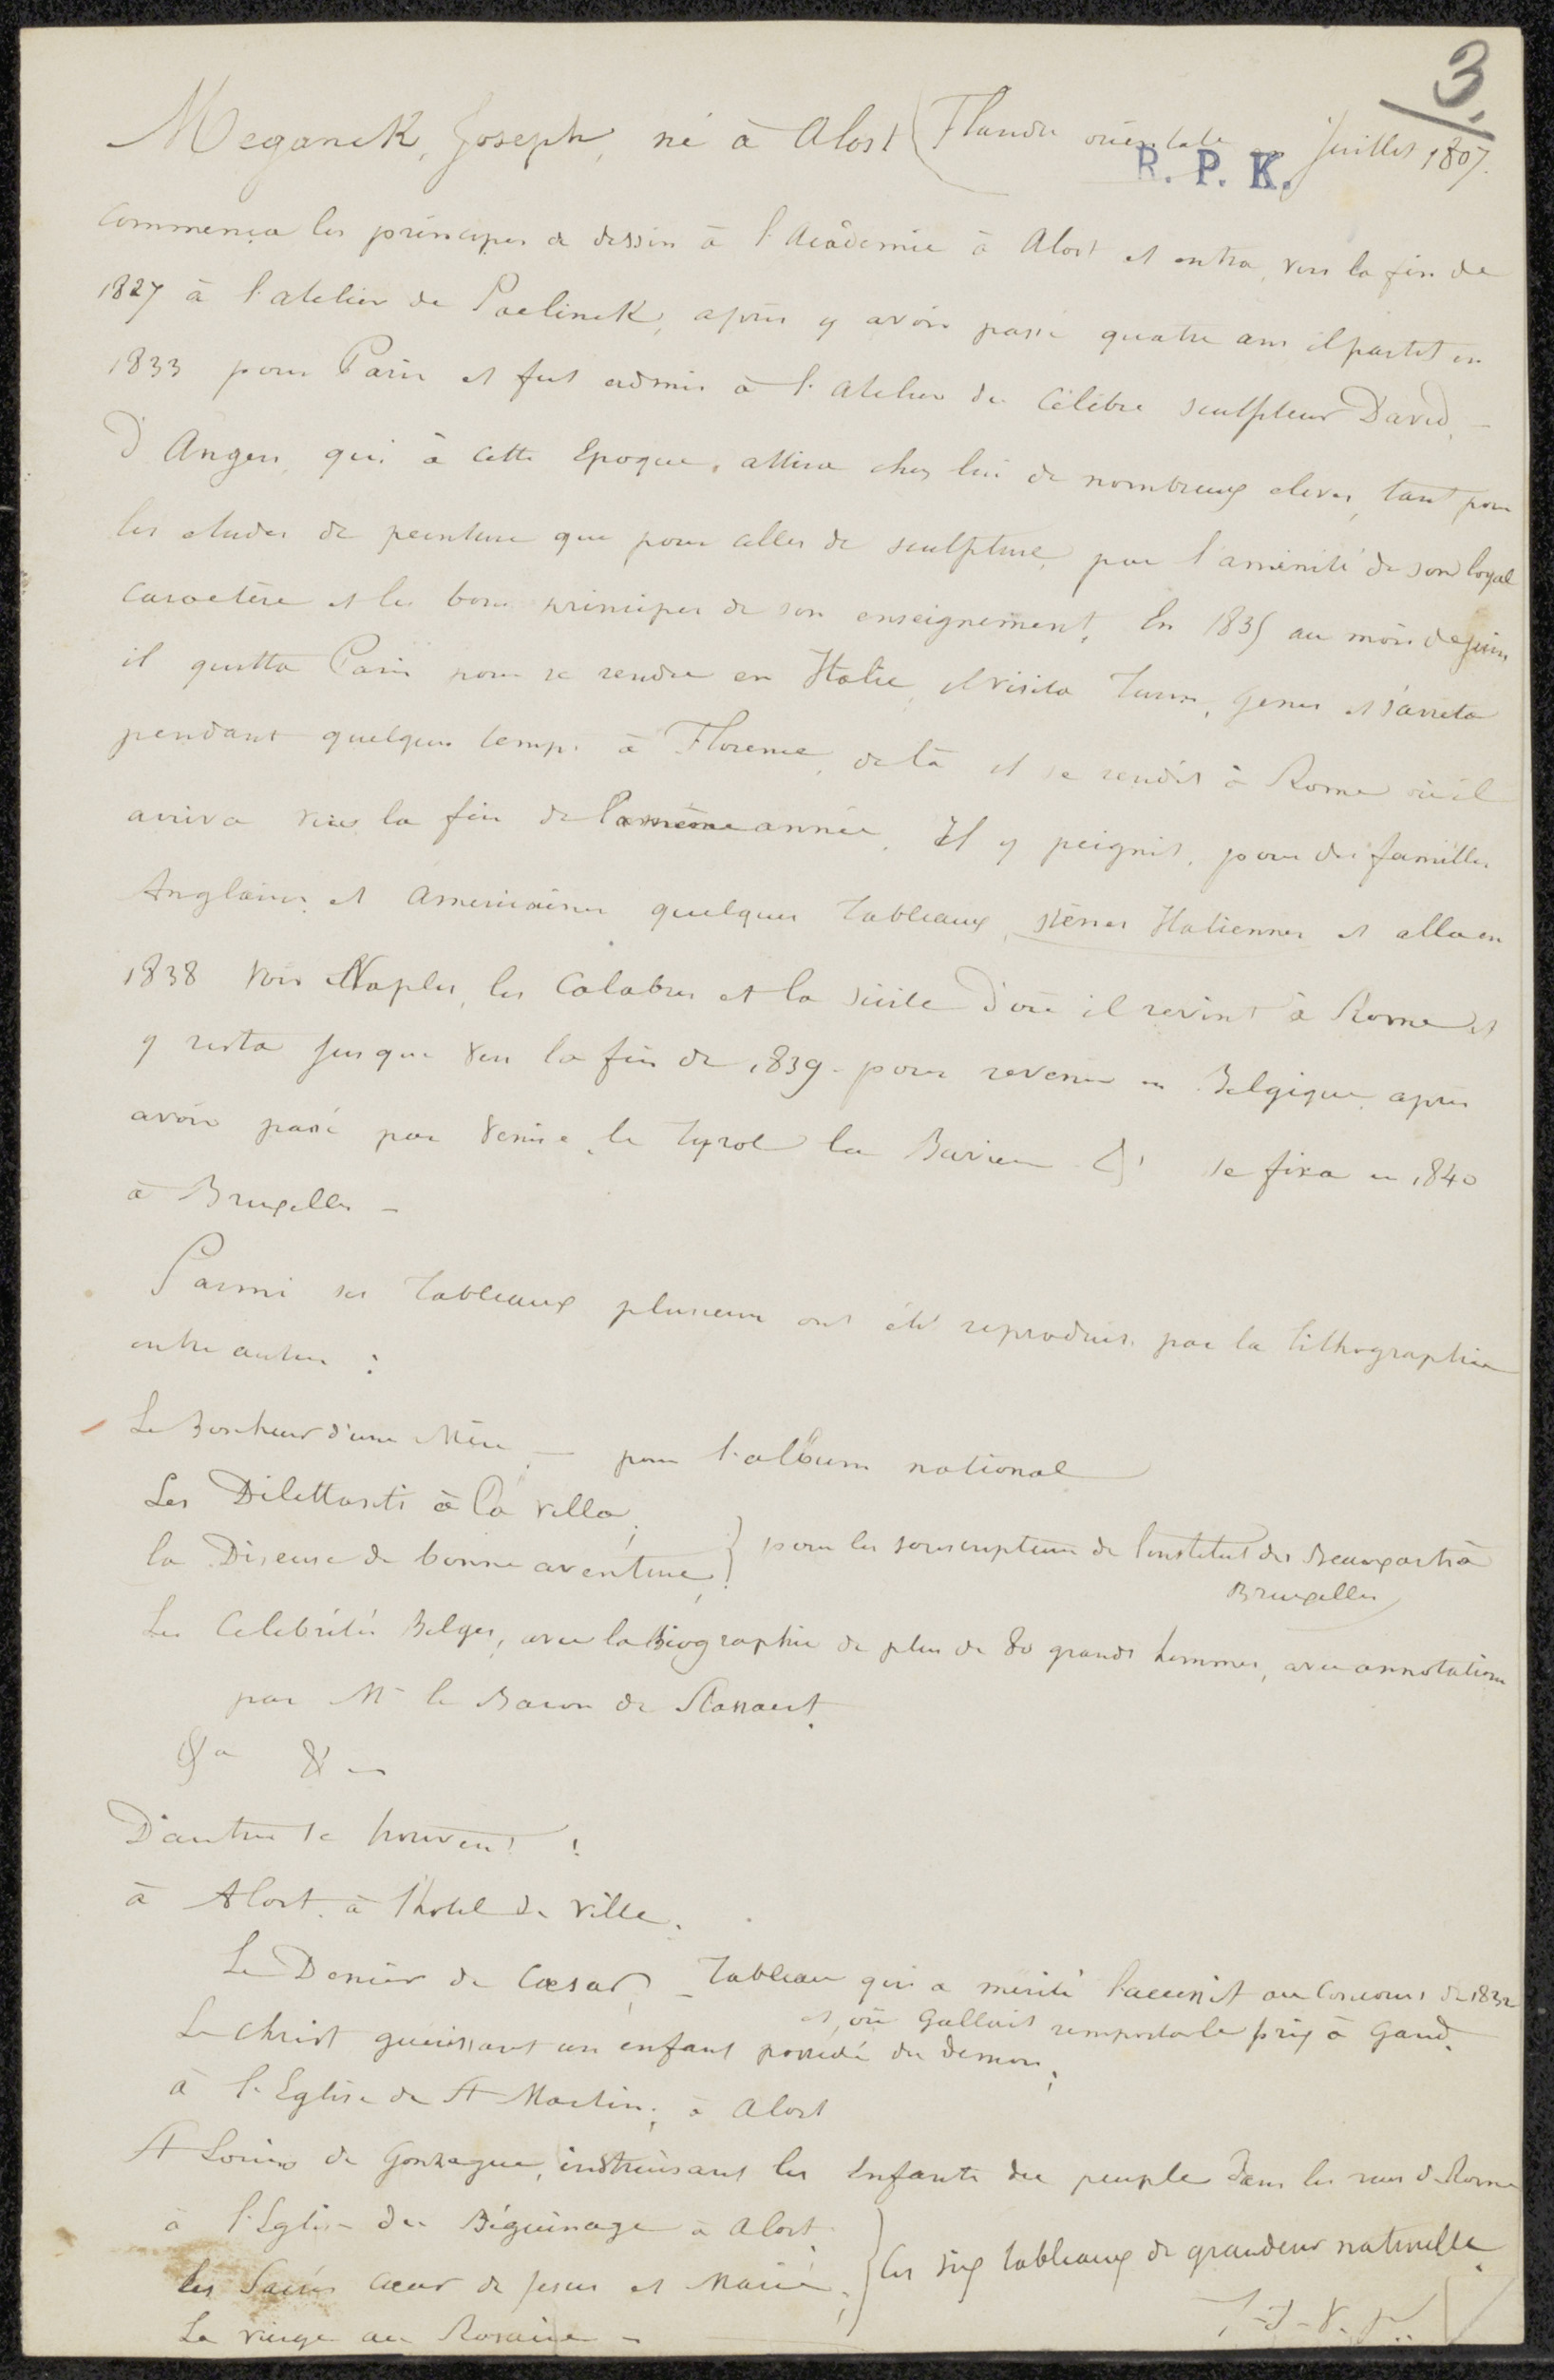 3.
Meganck, Joseph, né à Alost (Flandre orientale en Juillet 1807.
R. P. K.
commença les principes de dessin à l'Académie à Alost et entra, vers la fin de
1827 à l'atelier de Paelinck, après y avoir passé quatre ans il partit en
1833 pour Paris et fut admis à l'atelier du Célèbre sculpteur David, -
D'Angers, qui à cette Epoque, attira chez lui de nombreux elèves, tant pour
les etudes de peinture que pour celles de sculpture, par l'aménité de son loyal
caractère et les bons principes de son enseignement. En 1835 au mois de juin
il quitta Paris pour se rendre en Italie, il visita Turin, Genes et s'arreta
pendant quelques temps à Florence, de là il se rendit à Rome où il
arriva vers la fin de la même année. Il y peignit, pour des familles
Anglaises et Americaines quelques tableaux, scènes Italiennes et alla en
1838 voir Naples, les Calabres et la Sicile d'où il revint à Rome et
y resta jusque vers la fin de 1839 - pour revenir en Belgique, après
avoir passé par Venise, le Tyrol la Baviere & se fixa en 1840
à Bruxelles -
Parmi ses tableaux plusieurs ont été reproduits par la lithographie
entre autres :
Le Bonheur d'une Mère, - pour l'album national
Les Dilettanti à la villa,
la Diseuse de bonne aventure, } pour les souscripteurs de l'institut des Beaux arts à
Bruxelles
Les Celebrités Belges, avec la Biographie de plus de 80 grands hommes, avec annotations
par Mr le Baron de Stassart.
&a &a
D'autres se trouvent :
à Alost à l'hotel de ville.
Le Denier de Cæsar, - tableau qui a mérité l'accessit au Concours de 1832
et, où Gallait remporta le prix à Gand.
Le Christ guerissant un enfant possedé du demon;
à l'Eglise de St Martin, à Alost
St Louis de Gonzague, instruisant les Enfants du peuple dans les rues de Rome
à l'Eglise du Béguinage à Alost
les Sacrés Cœur de Jesus et Marie, } les six tableaux de grandeur naturelle.
La vierge au Rosaire -